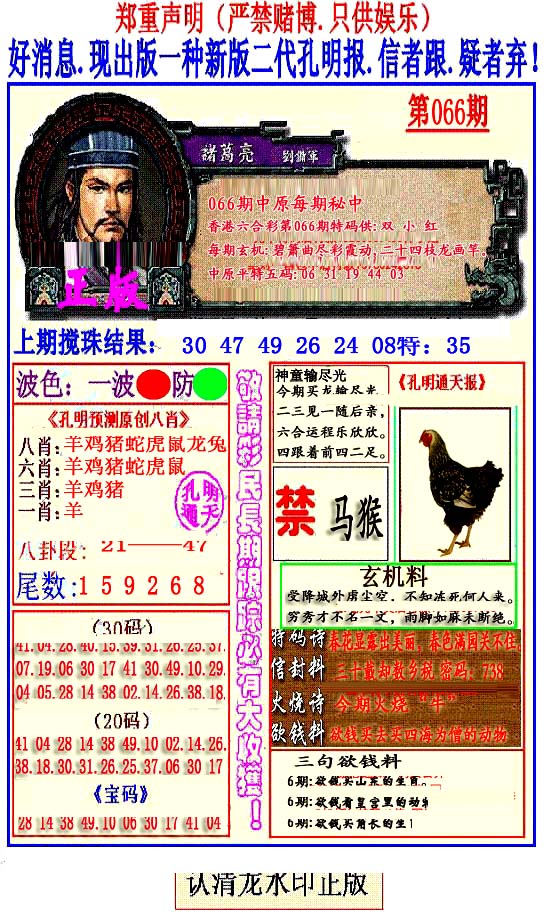 郑重声明（严禁赌博.只供娱乐）
好消息.现出版一种新版二代孔明报.信者跟.疑者弃!
第066期
諸葛亮 劉備軍
066期中原每期秘中
香港六合彩第066期特码供: 双 小 红
每期玄机: 碧箫曲尽彩霞动, 二十四枝龙画竿。
中原平特五码: 06 31 19 44 03
正版
上期搅珠结果： 30 47 49 26 24 08特：35
波色：一波 防
《孔明预测原创八肖》
八肖:羊鸡猪蛇虎鼠龙兔
六肖:羊鸡猪蛇虎鼠
三肖:羊鸡猪
一肖:羊
孔明通天
八卦段: 21——47
尾数:159268
(30码)
41.04.28.40.15.39.31.26.25.37
07.19.06.30 17 41 30.49.10.29.
04 05.28 14 38 02.14.26.38.18.
(20码)
41 04 28 14 38 49.10 02.14.26.
38.18.30.31.26.25.37.06 30 17
《宝码》
28 14 38 49.10 06 30 17 41 04
敬請彩民長期跟踪必有大收獲！
神童输尽光
今期买龙输尽光
二三见一随后亲,
六合运程乐欣欣。
四跟着前四二足。
《孔明通天报》
禁 马猴
玄机料
受降城外虏尘空, 不知冻死何人来。
穷秀才不名一文, 雨脚如麻未断绝。
特码诗 春花显露出美丽, 春色满园关不住
信封料 三十载却数乡税 密码: 738
火烧诗 今期火烧“牛”
欲钱料 欲钱买去买四海为僧的动物
三句欲钱料
6期:欲钱买山东的生肖。
6期:欲钱看皇宫里的动
6期:欲钱买角长的生
认清龙水印正版